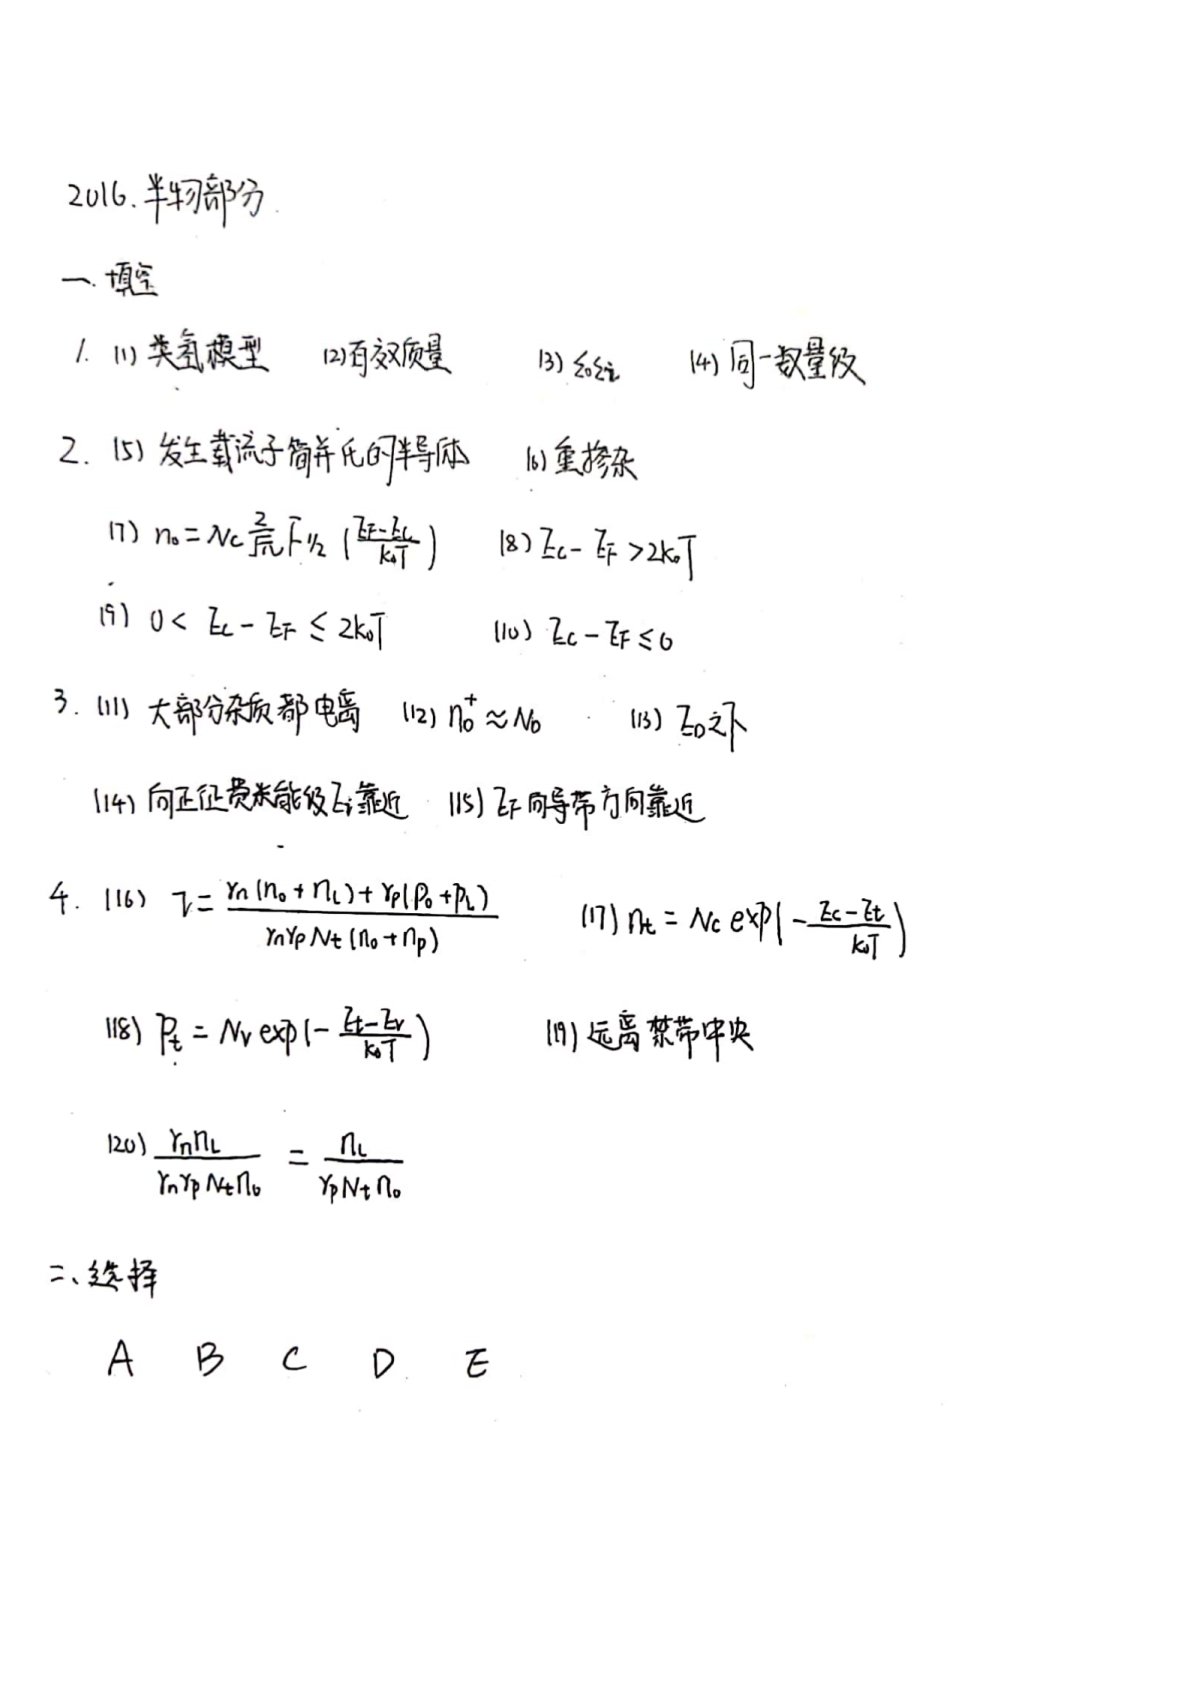 2016.半物部分
一. 填空
1. (1) 类氢模型 (2) 有效质量 (3) ε₀εᵣ (4) 同一数量级
2. (5) 发生载流子简并化的半导体 (6) 重掺杂
(7) n₀ = Nc 2/√π F1/2 ( (EF-Ec)/k₀T ) (8) Ec - EF > 2k₀T
(9) 0 < Ec - EF ≤ 2k₀T (10) Ec - EF ≤ 0
3. (11) 大部分杂质都电离 (12) n₀⁺ ≈ ND (13) ED之下
(14) 向正征费米能级Ei靠近 (15) EF向导带方向靠近
4. (16) τ = (rn(n₀+n₁)+rp(p₀+p₁)) / (rn rp Nt(n₀+np)) (17) nt = Nc exp(- (Ec-Et)/k₀T )
(18) Pt = Nv exp(- (Et-Ev)/k₀T ) (19) 远离禁带中央
(20) rn n₁ / (rn rp Nt n₀) = n₁ / (rp Nt n₀)
二、选择
A B C D E